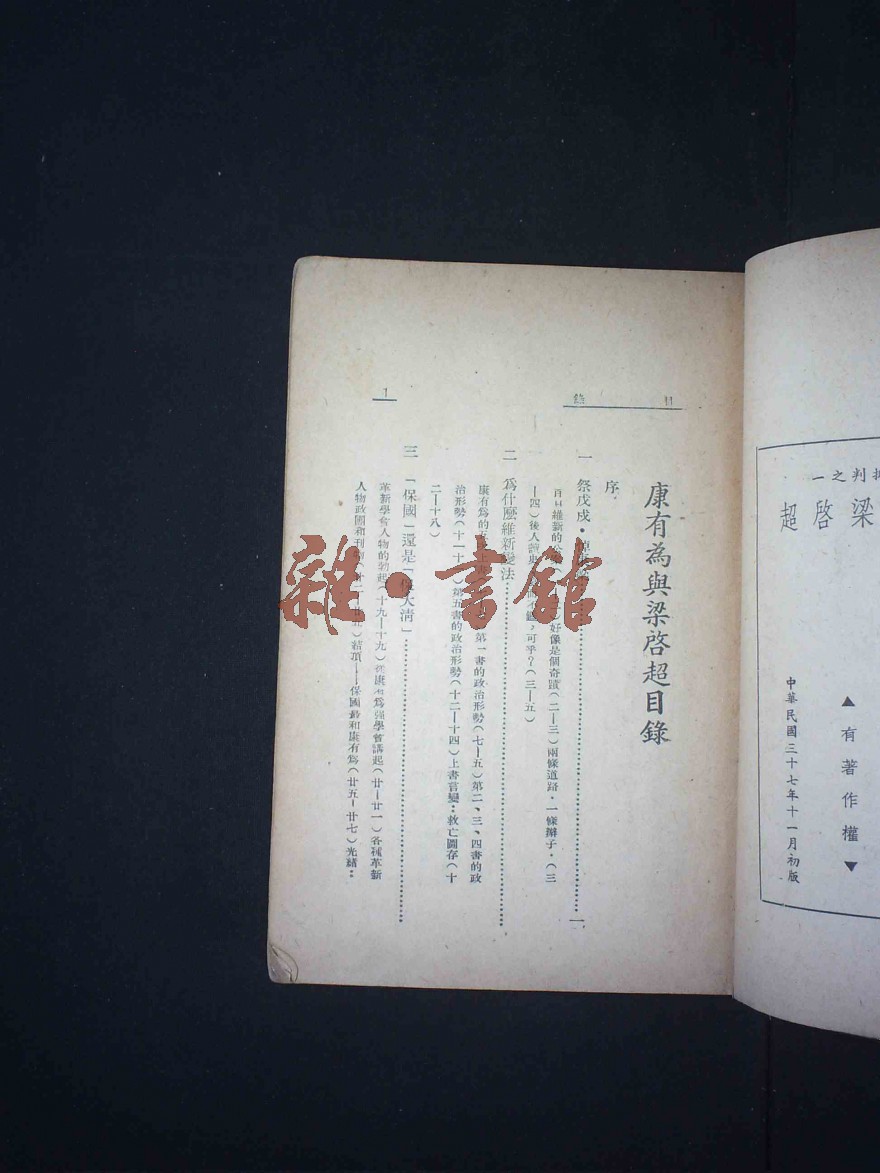 批判之一
梁啓超
▲有著作權▼
中華民國三十七年十一月初版
目錄
康有為與梁啓超目錄
序
一 祭戊戌・
百日維新的 好像是個奇蹟(二—三)兩條道路・一條辮子・(三
—四)後人 可乎?(三—五)
二 爲什麼維新變法
康有爲的五 上書 第一書的政治形勢(七—五)第二、三、四書的政
治形勢(十一—十 第五書的政治形勢(十二—十四)上書言變:救亡圖存(十
二—十八)
三 「保國」還是「保大清」
革新學會人物的勃起(十九—十九)從康有爲強學會講起(廿—廿一)各種革新
人物政團和刊物(廿一—廿五)結頂——保國會和康有爲(廿五—廿七)光緒:
1
雜・書館